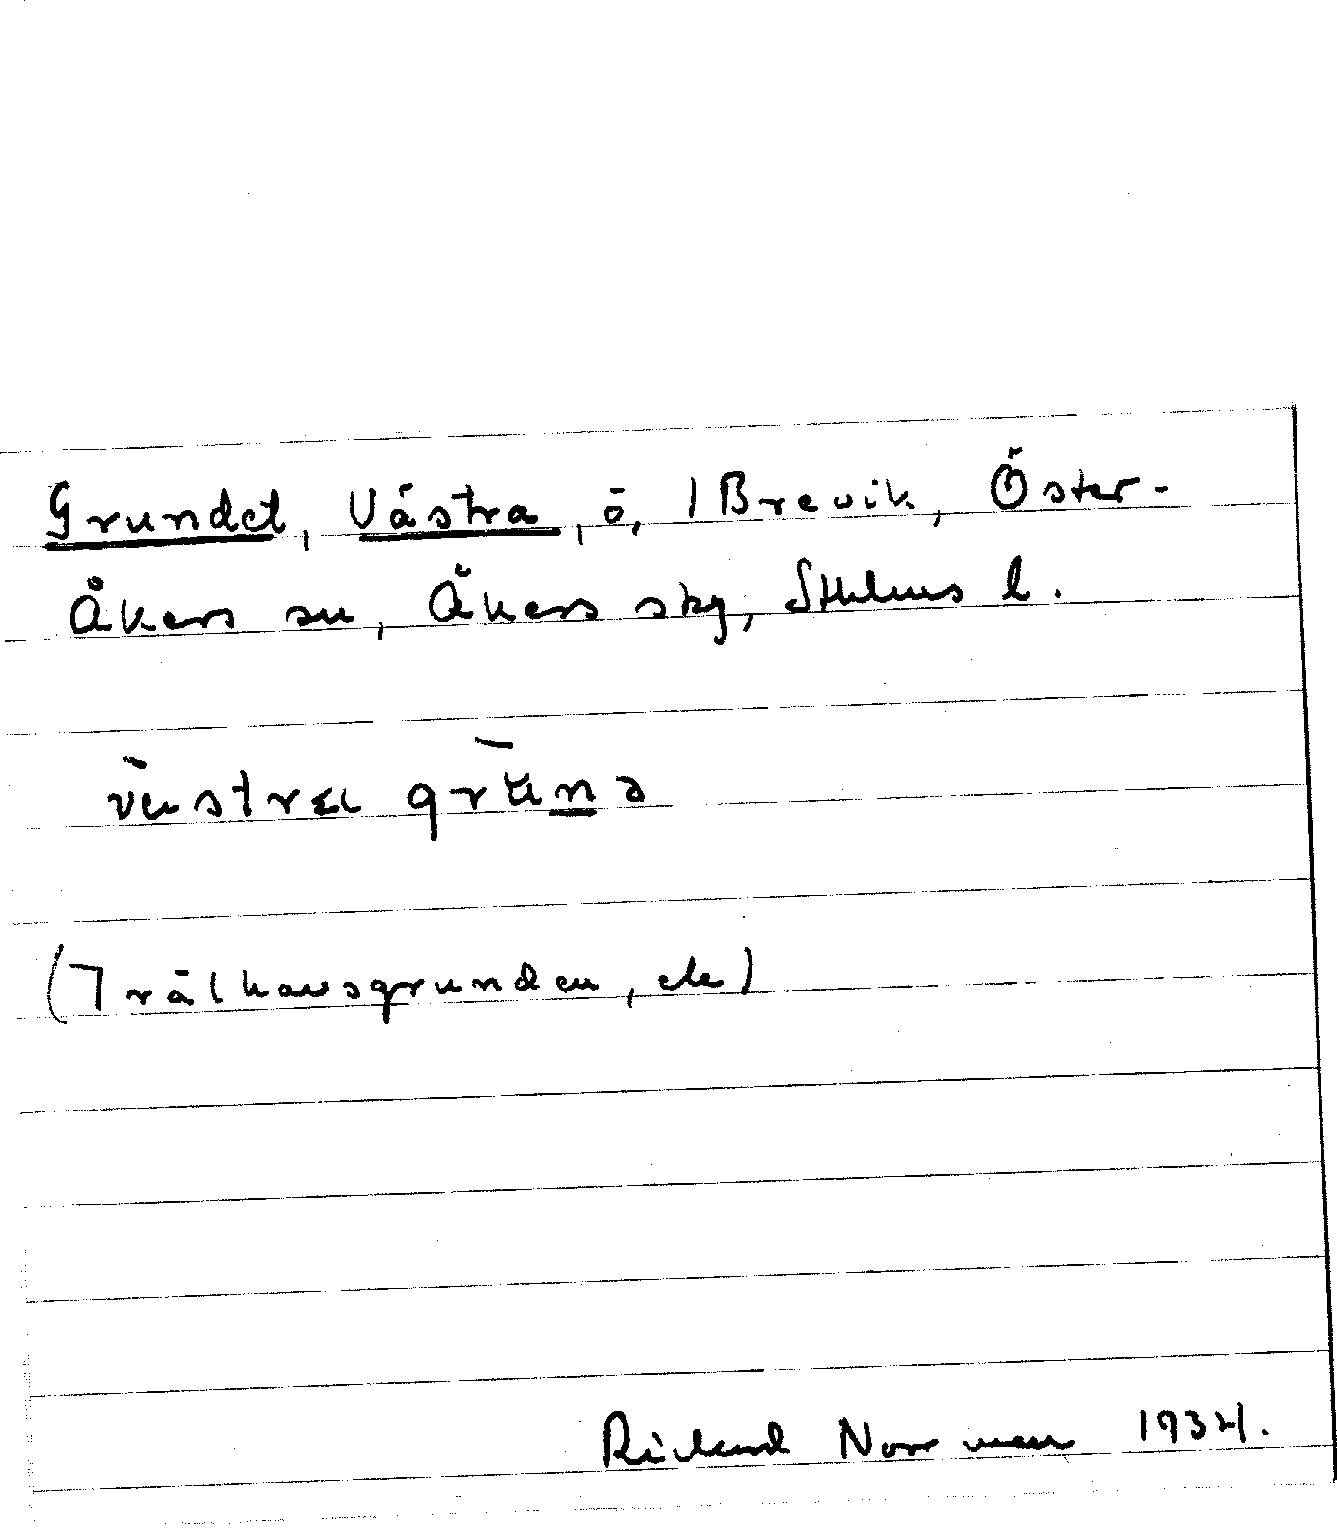 Grundet, Västra, ö, 1 Brevik, Öster-
Åkers sn, Åkers skg, Sthlms l.
västra grunə
(Trälhavsgrunden, ele)
Rickard Norrman 1934.